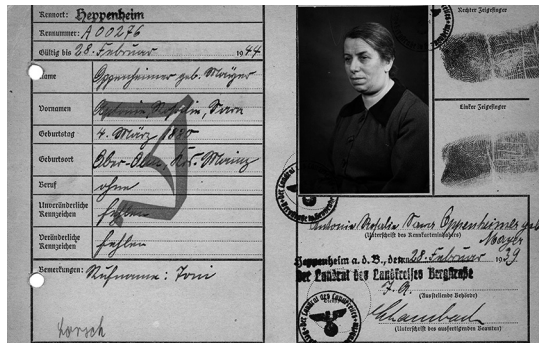 Kennort: Heppenheim
Kennummer: A 00276
Gültig bis 28. Februar 1944
Name Oppenheimer geb. Mayer
Vornamen Antonie, Rosalie, Sara
Geburtstag 4. März
Geburtsort Ober-Olm, Krs. Mainz
Beruf ohne
Unveränderliche Kennzeichen fehlen
Veränderliche Kennzeichen fehlen
Bemerkungen: Rufname: Toni
Lorsch
J
Rechter Zeigefinger
Linker Zeigefinger
Antonie Rosalie Sara Oppenheimer geb.
Mayer
(Unterschrift des Kennkarteninhabers)
Heppenheim a. d. B., den 28. Februar 1939
Der Landrat des Landkreises Bergstraße
J. A.
(Ausstellende Behörde)
(Unterschrift des ausfertigenden Beamten)